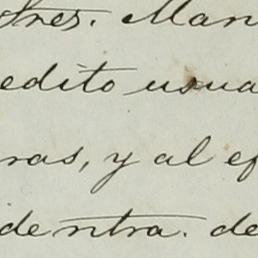 tres. Man
edito usua
ras, y al ef
de ntra. de